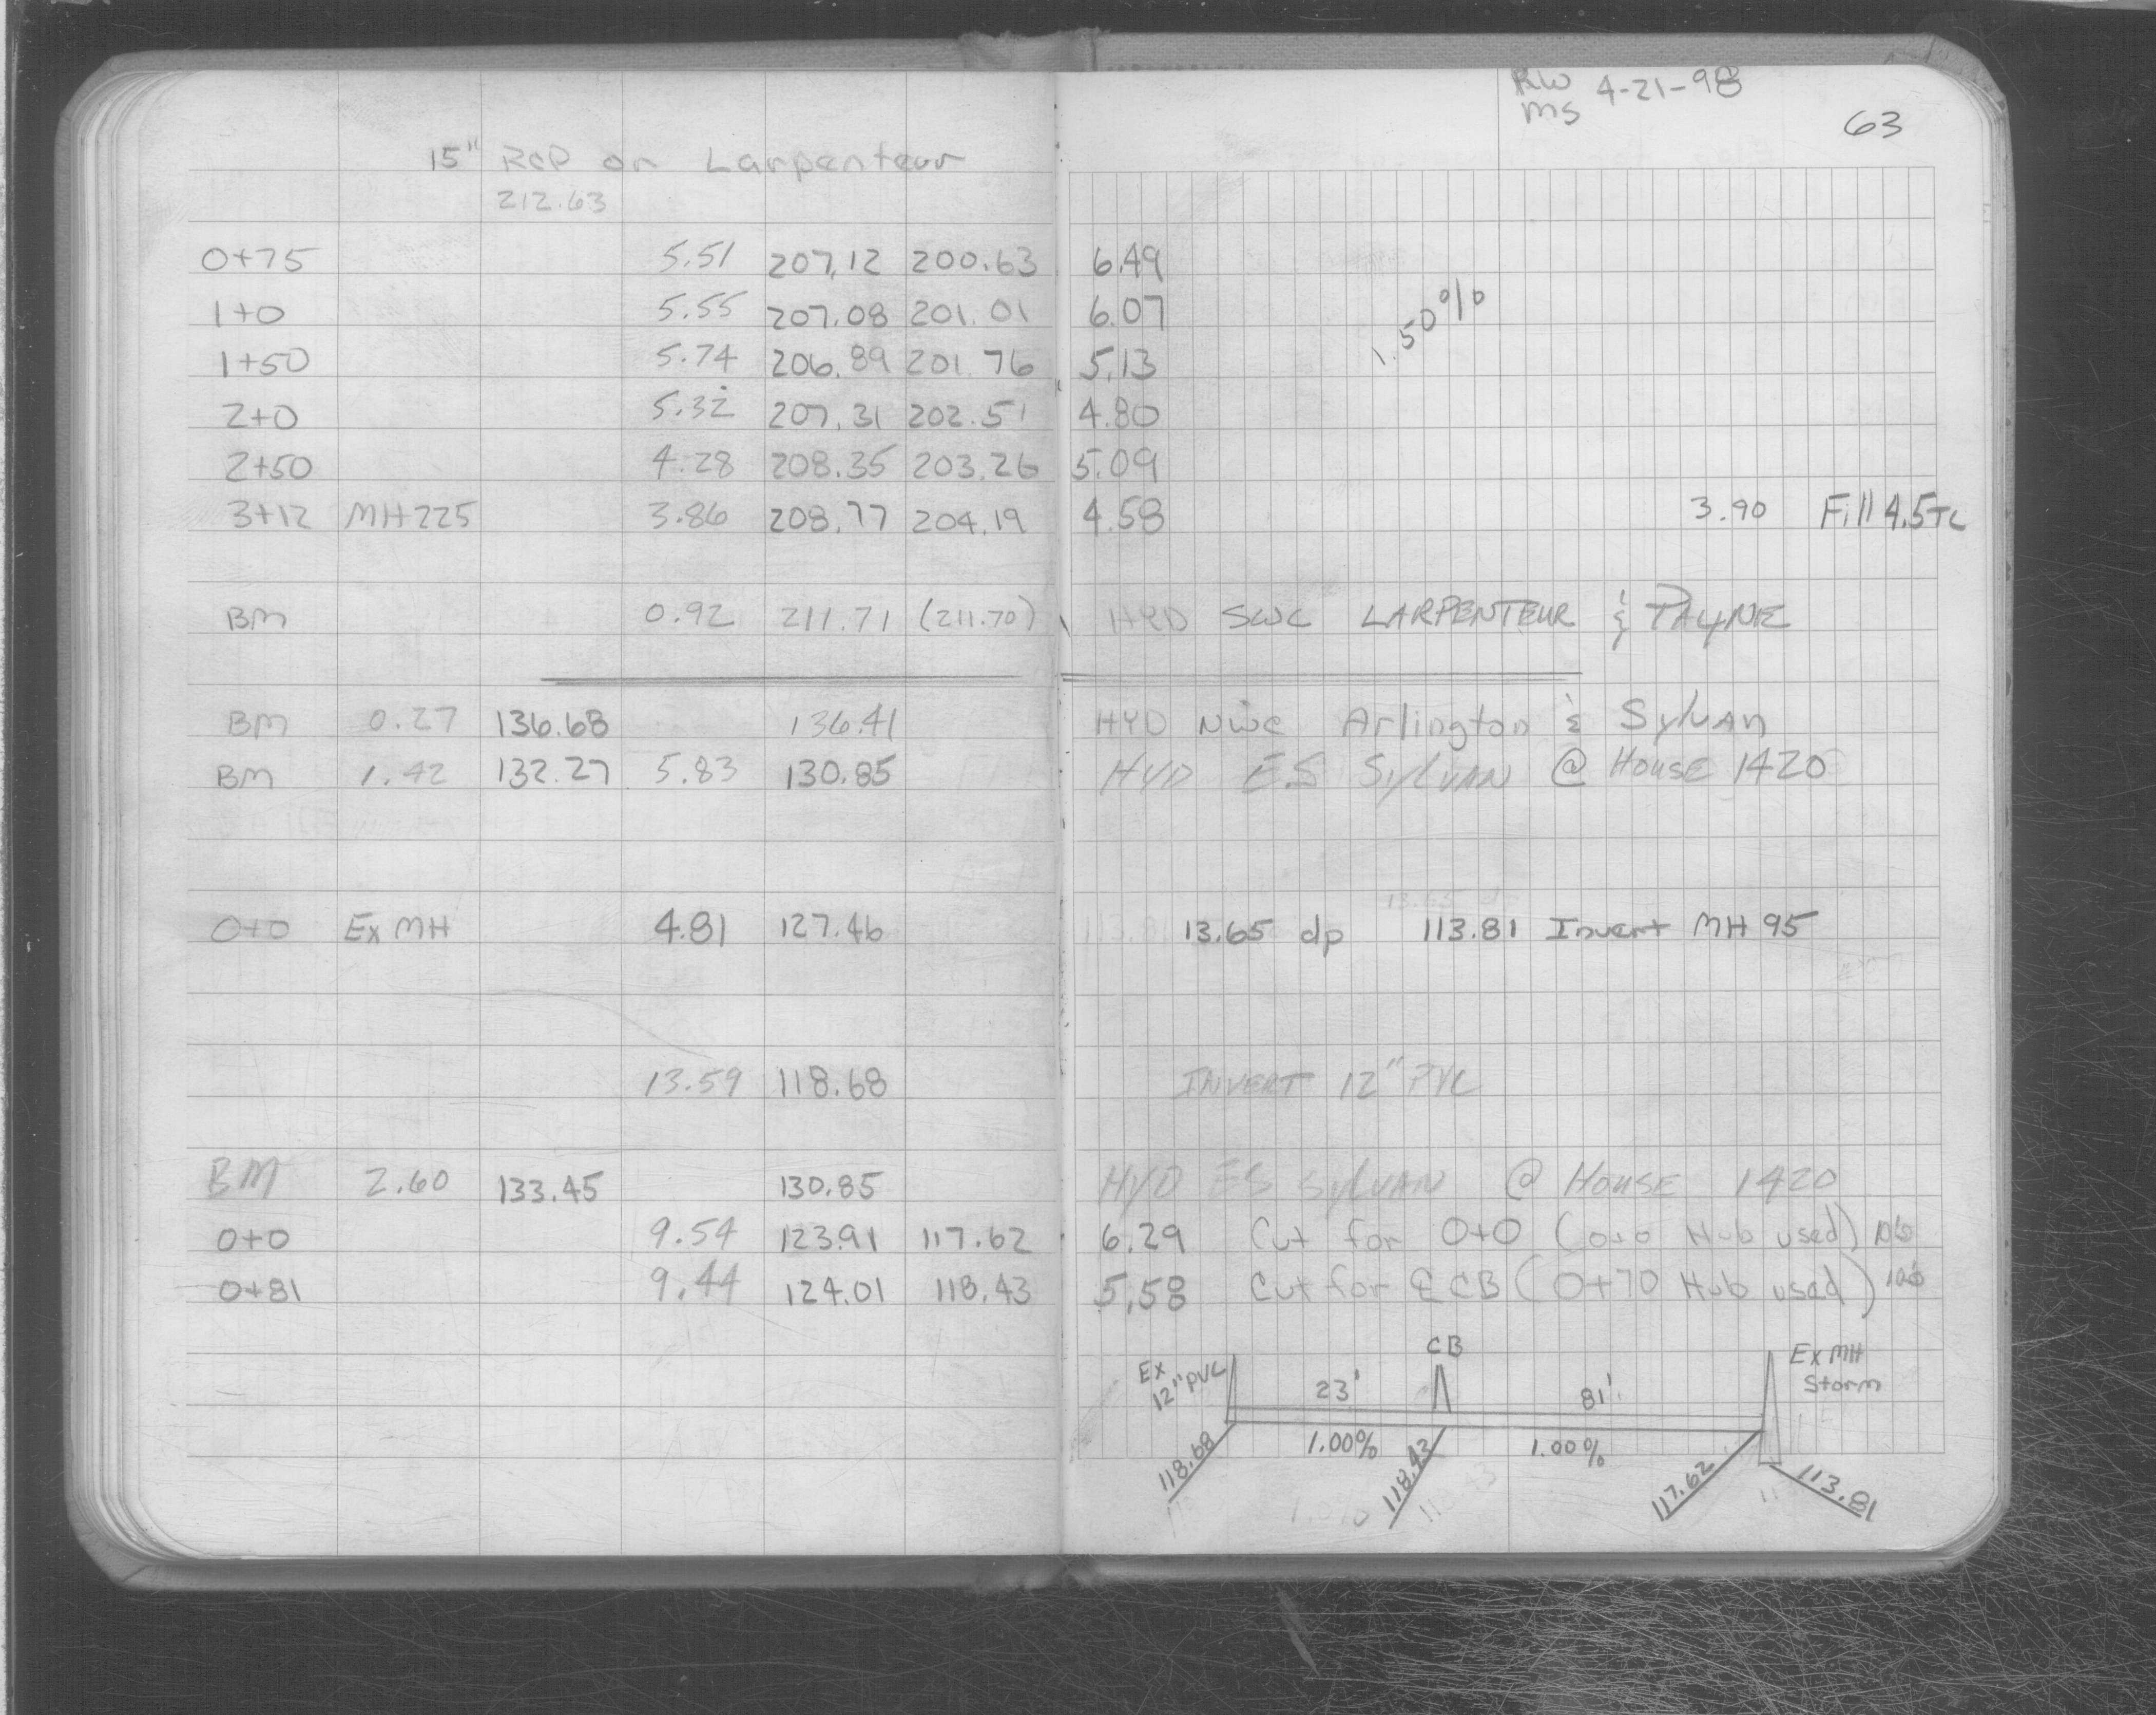 RW 4-21-98
MS
63
15" RCP on Larpenteur
212.63
0+75 5.51 207.12 200.63 6.49
1+0 5.55 207.08 201.01 6.07
1.50%
1+50 5.74 206.89 201.76 5.13
2+0 5.32 207.31 202.51 4.80
2+50 4.28 208.35 203.26 5.09
3+12 MH225 3.86 208.77 204.19 4.58 3.90 Fill 4.5 TC
BM 0.92 211.71 (211.70) HYD SWC LARPENTEUR & PAYNE
BM 0.27 136.68 136.41 HYD NWC Arlington & Sylvan
BM 1.42 132.27 5.83 130.85 HYD ES Sylvan @ House 1420
0+0 Ex MH 4.81 127.46 13.65 dp 113.81 Invert MH 95
13.59 118.68 INVERT 12" PVC
BM 2.60 133.45 130.85 HYD ES Sylvan @ House 1420
0+0 9.54 123.91 117.62 6.29 Cut for 0+0 (0+0 Hub used)
0+81 9.44 124.01 118.43 5.58 Cut for ℄ CB (0+70 Hub used)
Ex 12" PVC CB Ex MH Storm
23' 81'
1.00% 1.00%
118.68 118.43 117.62 113.81